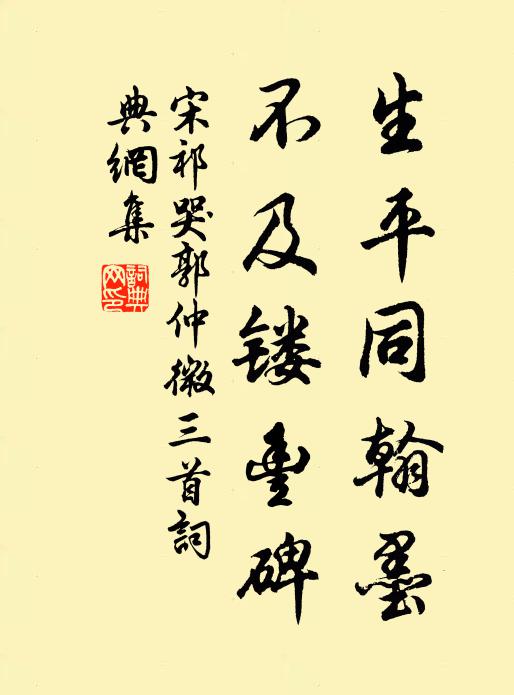 生平同翰墨
不及镂豊碑
宋祁哭郭仲微三首詞
典網集
詞典网印